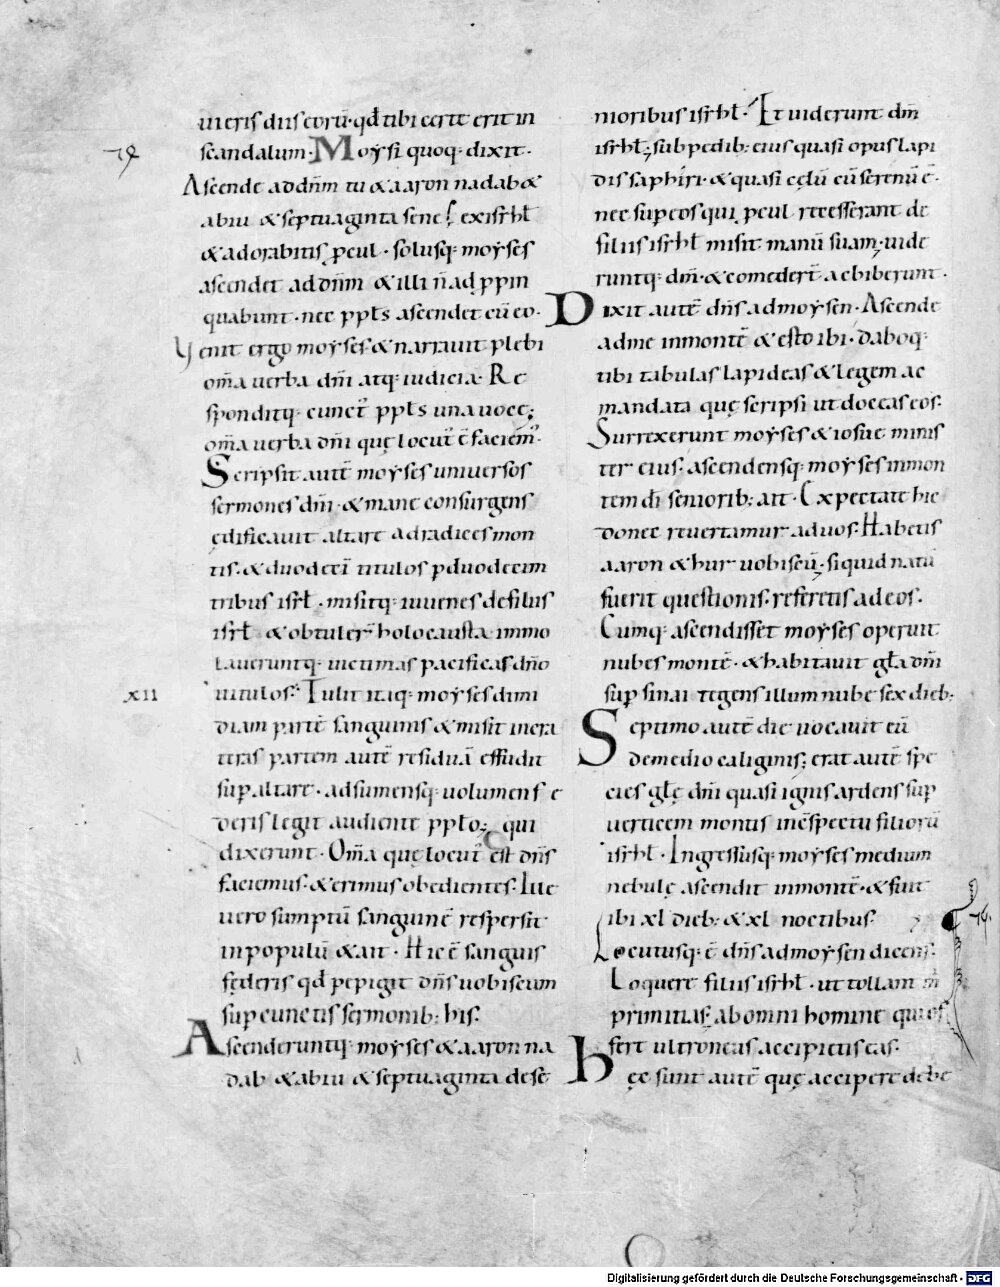 uieris diis eorū· qđ tibi certe erit in
scandalum· Moẏsi quoq· dixit·
Ascende ad dn̄m tu & aaron nadab &
abiu & septuaginta senes ex isrl̄
& adorabitis ꝓcul· solusq· moẏses
ascendet ad dn̄m & illi n̄ adꝓpin
quabunt· nec ppl̄s ascendet cū eo·
Venit ergo moẏses & narrauit plebi
om̄a uerba dn̄i atq· iudicia· Re
sponditq· cunct' ppl̄s una uoce;
om̄a uerba dn̄i quę locut' ē faciem'·
Scripsit autē moẏses uniuersos
sermones dn̄i· & mane consurgens
ędificauit altare ad radices mon
tis· & duodecī titulos p duodecim
tribus isrl̄· misitq· iuuenes de filiis
isrl̄ & obtuler̄ holocausta· immo
laueruntq· uictimas pacificas dn̄o
uitulos· Tulit itaq· moẏses dimi
diam partē sanguinis & misit in cra
teras partem autē residuā effudit
sup altare· adsumensq· uolumen fę
deris legit audiente ppl̄o; qui
dixerunt· Om̄a quę locut' est dn̄s
faciemus· & erimus obedientes· Ille
uero sumptū sanguinē respersit
in populū & ait· Hic ē sanguis
fęderis qđ pepigit dn̄s uobiscum
sup cunctis sermonib; his·
Ascenderuntq· moẏses & aaron na
dab & abiu & septuaginta de sē
xii
nioribus isrl̄· Et uiderunt dm̄
isrl̄; sub pedib; eius quasi opus lapi
dis saphiri· & quasi cęlū cū serenū ē·
nec sup eos qui ꝓcul recesserant de
filiis isrl̄ misit manū suam· uide
runtq· dm̄· & comeder̄t ac biberunt·
Dixit autē dn̄s ad moẏsen· Ascende
ad me in montē & esto ibi· daboq·
tibi tabulas lapideas & legem ac
mandata quę scripsi ut doceas eos·
Surrexerunt moẏses & iosue minis
ter eius· ascendensq· moẏses in mon
tem dī seniorib; ait· Expectate hic
donec reuertamur ad uos· Habetis
aaron & hur uobiscū· si quid natū
fuerit questionis· referetis ad eos·
Cumq· ascendisset moẏses operuit
nubes montē· & habitauit gl̄a dn̄i
sup sinai tegens illum nube sex dieb;
Septimo autē die uocauit eū
de medio caliginis; erat autē spe
cies gl̄ę dn̄i quasi ignis ardens sup
uerticem montis in cōspectu filiorū
isrl̄· Ingressusq· moẏses medium
nebulę ascendit in montē· & fuit
ibi xl dieb; & xl noctibus·
Locutusq· ē dn̄s ad moẏsen dicens·
Loquere filiis isrl̄· ut tollant m̄
primitias· ab omni homine qui of
fert ultroneus accipietis eas·
hęc sunt autē quę accipere debe
Digitalisierung gefördert durch die Deutsche Forschungsgemeinschaft - DFG